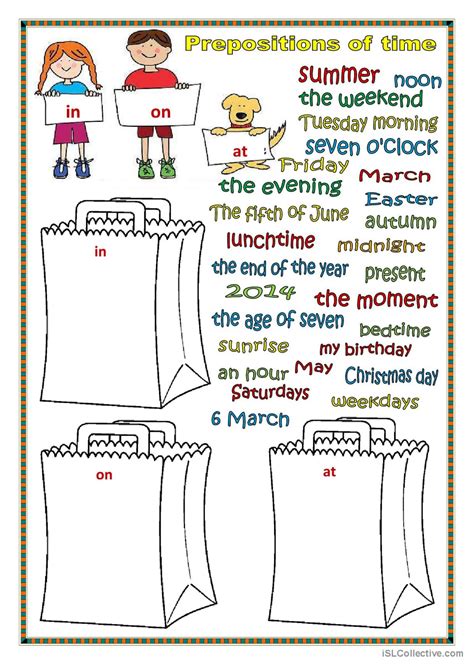 Prepositions of time
in
on
at
summer noon
the weekend
Tuesday morning
seven o'clock
Friday
March
the evening
Easter
The fifth of June
autumn
lunchtime
midnight
the end of the year
present
2014
the moment
the age of seven
bedtime
sunrise
my birthday
an hour
May
Christmas day
Saturdays
weekdays
6 March
in
on
at
iSLCollective.com